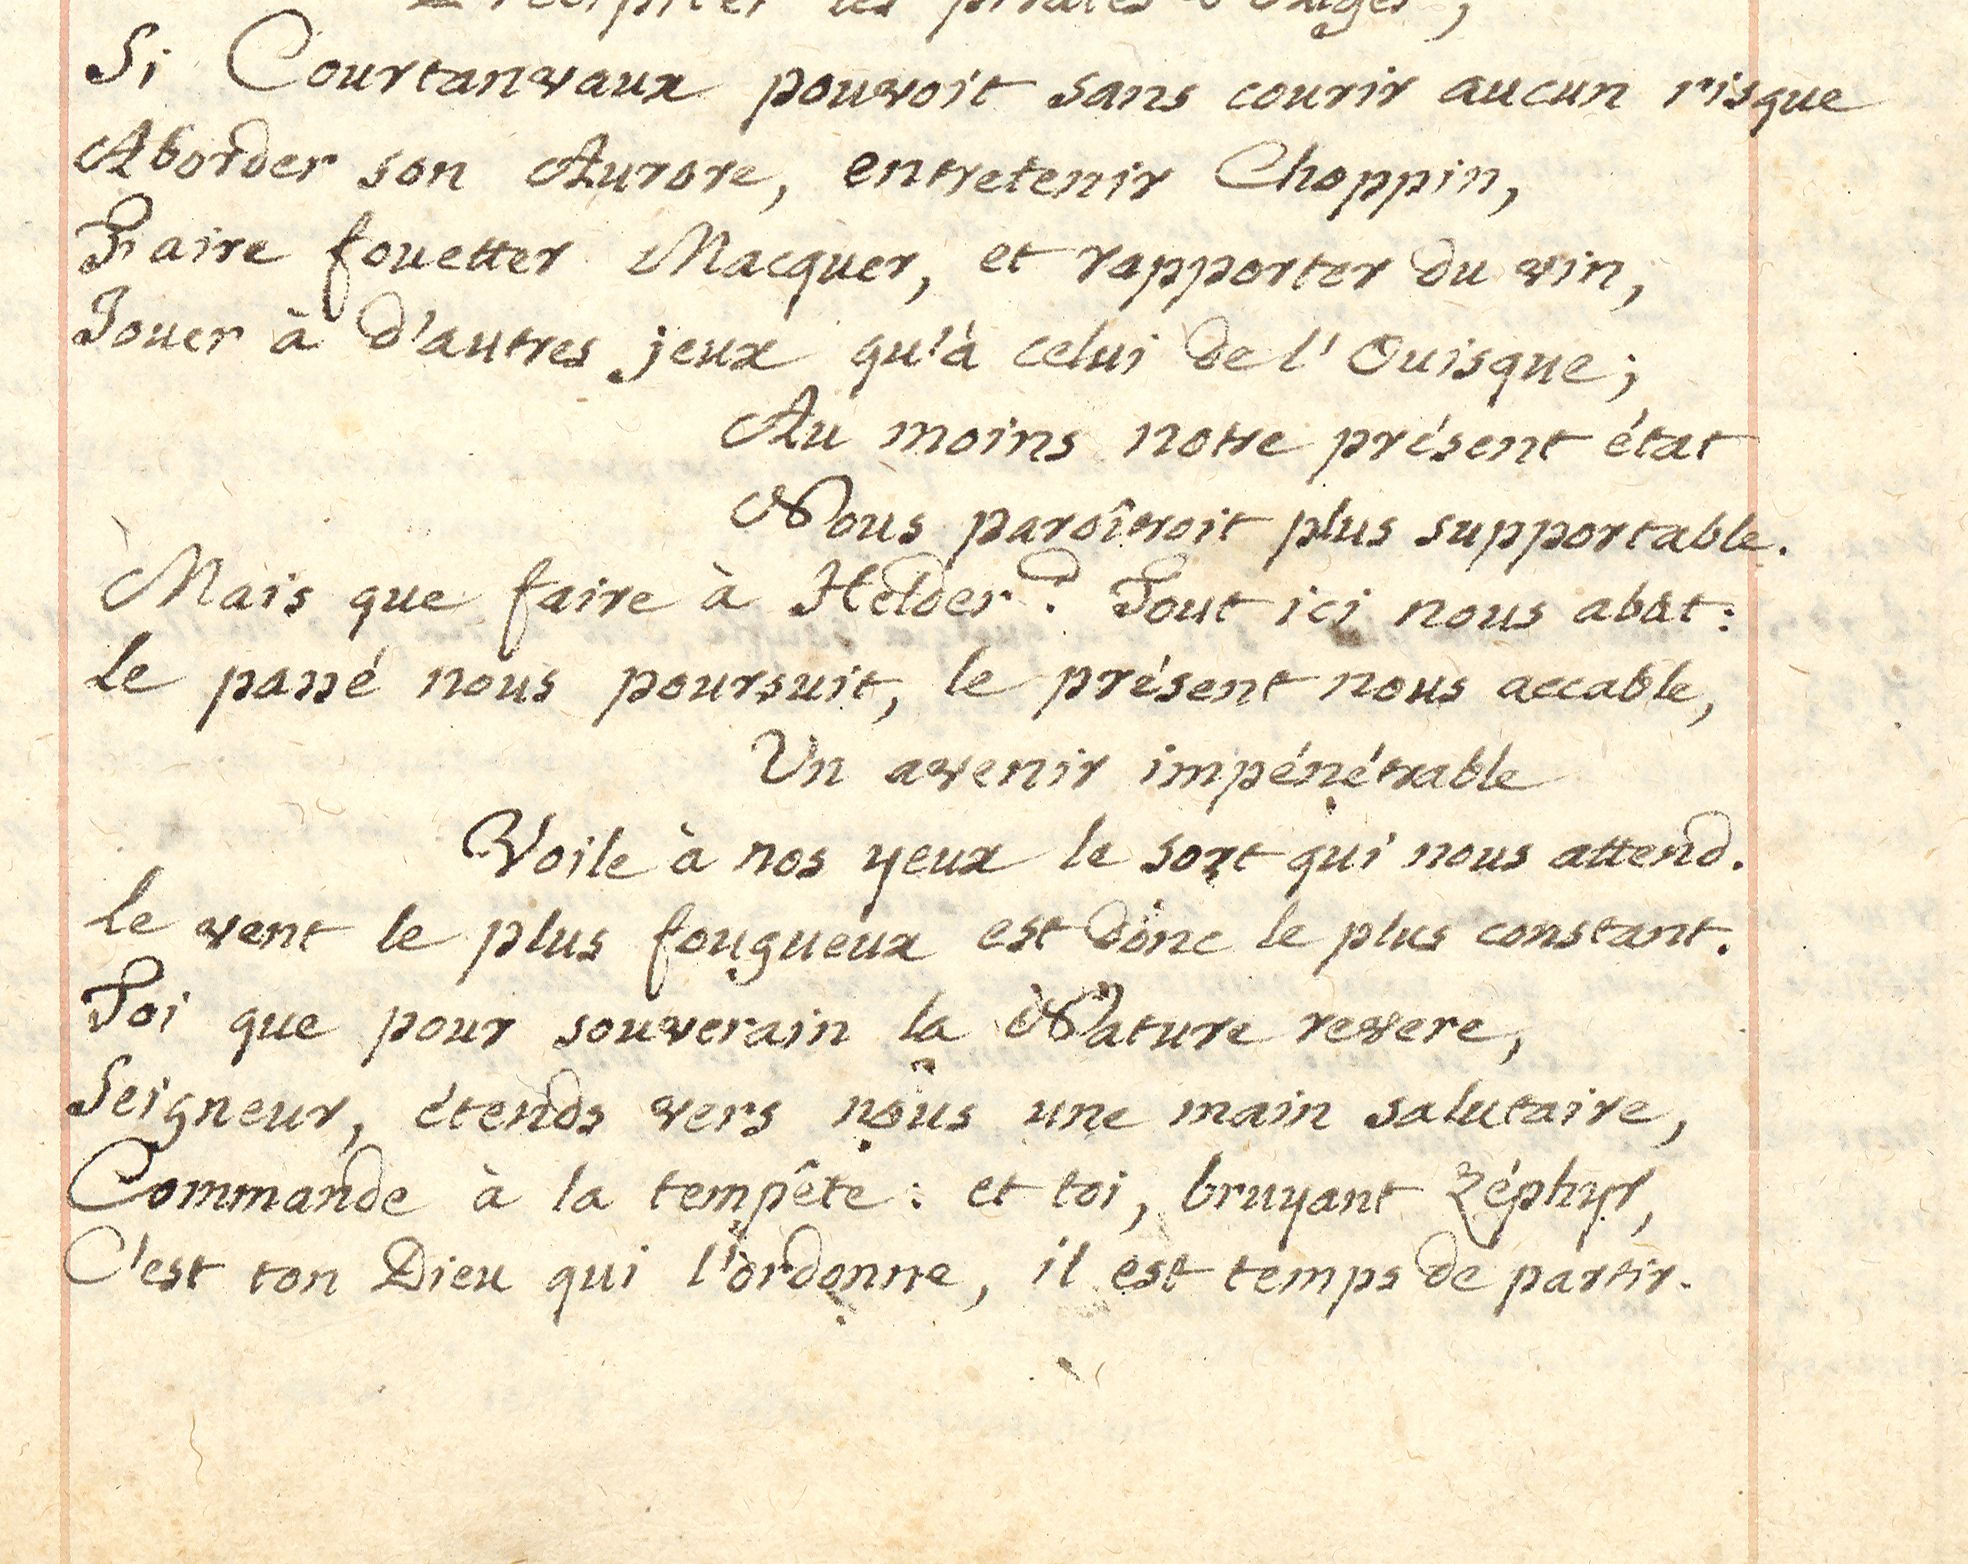 Précipiter les pirates d'Alger;
Si Courtanvaux pouvoit sans courir aucun risque
Aborder son Aurore, entretenir Choppin,
Faire fouetter Macquer, et rapporter du vin,
Jouer à d'autres jeux qu'à celui de l'Ouisque;
Au moins notre présent état
Nous paroîtroit plus supportable.
Mais que faire à Helder? Tout ici nous abat:
Le passé nous poursuit, le présent nous accable,
Un avenir impénétrable
Voile à nos yeux le sort qui nous attend.
Le vent le plus fougueux est donc le plus constant.
Toi que pour souverain la Nature revere,
Seigneur, étends vers nous une main salutaire,
Commande à la tempête: et toi, bruyant Zéphyr,
C'est ton Dieu qui l'ordonne, il est temps de partir.